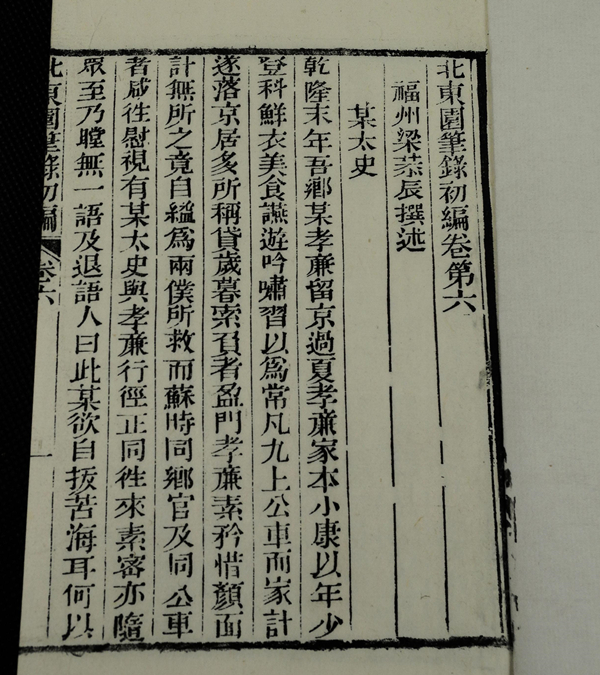 北東園筆錄初編卷第六
福州梁恭辰撰述
某太史
乾隆末年吾鄉某孝廉留京過夏孝廉家本小康以年少
登科鮮衣美食讌遊吟嘯習以為常凡九上公車而家計
遂落京居多所稱貸歲暮索召者盈門孝廉素矜惜顏面
計無所之竟自縊為兩僕所救而蘇時同鄉官及同公車
者咸徃慰視有某太史與孝廉行徑正同徃來素密亦隨
眾至乃瞠無一語及退語人曰此某欲自拔苦海耳何以
北東園筆錄初編 卷六 一